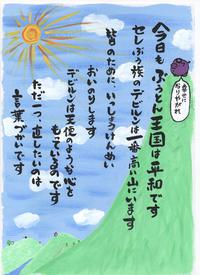 今日もぶぅとん王国は平和です
セレぶぅ族のデビルンは一番高い山にいます
皆のために、いっしょうけんめい
おいのりします
デビルンは天使のような心を
もっているのです
ただ一つ、直したいのは
言葉づかいです
幸せに
なりやがれ